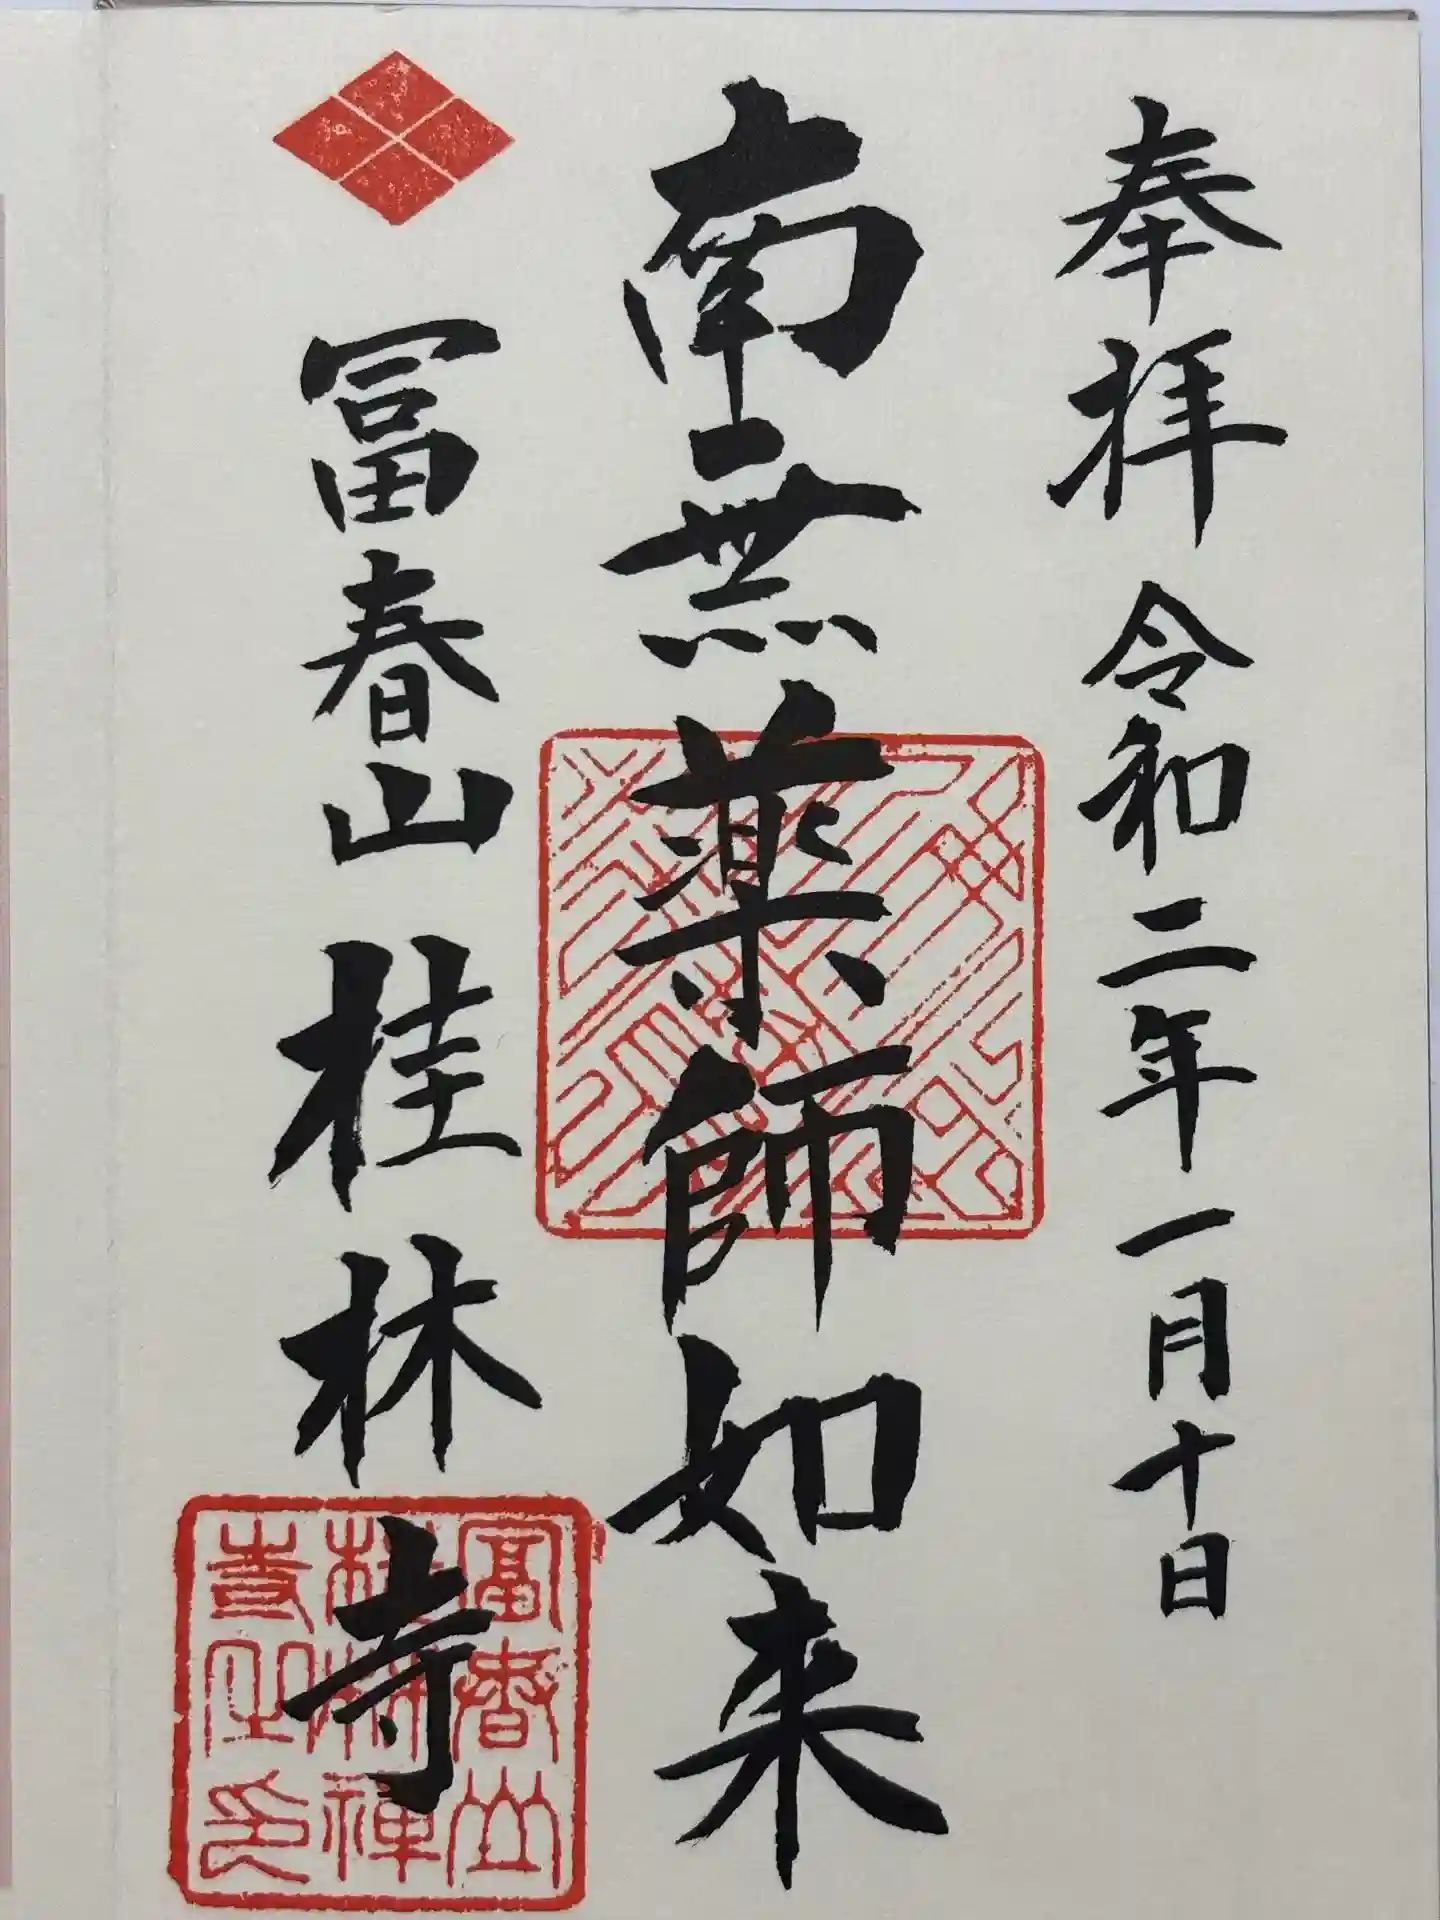 奉拝 令和二年一月十日
南無薬師如来
冨春山 桂林寺
冨春山
桂林禅
寺之印